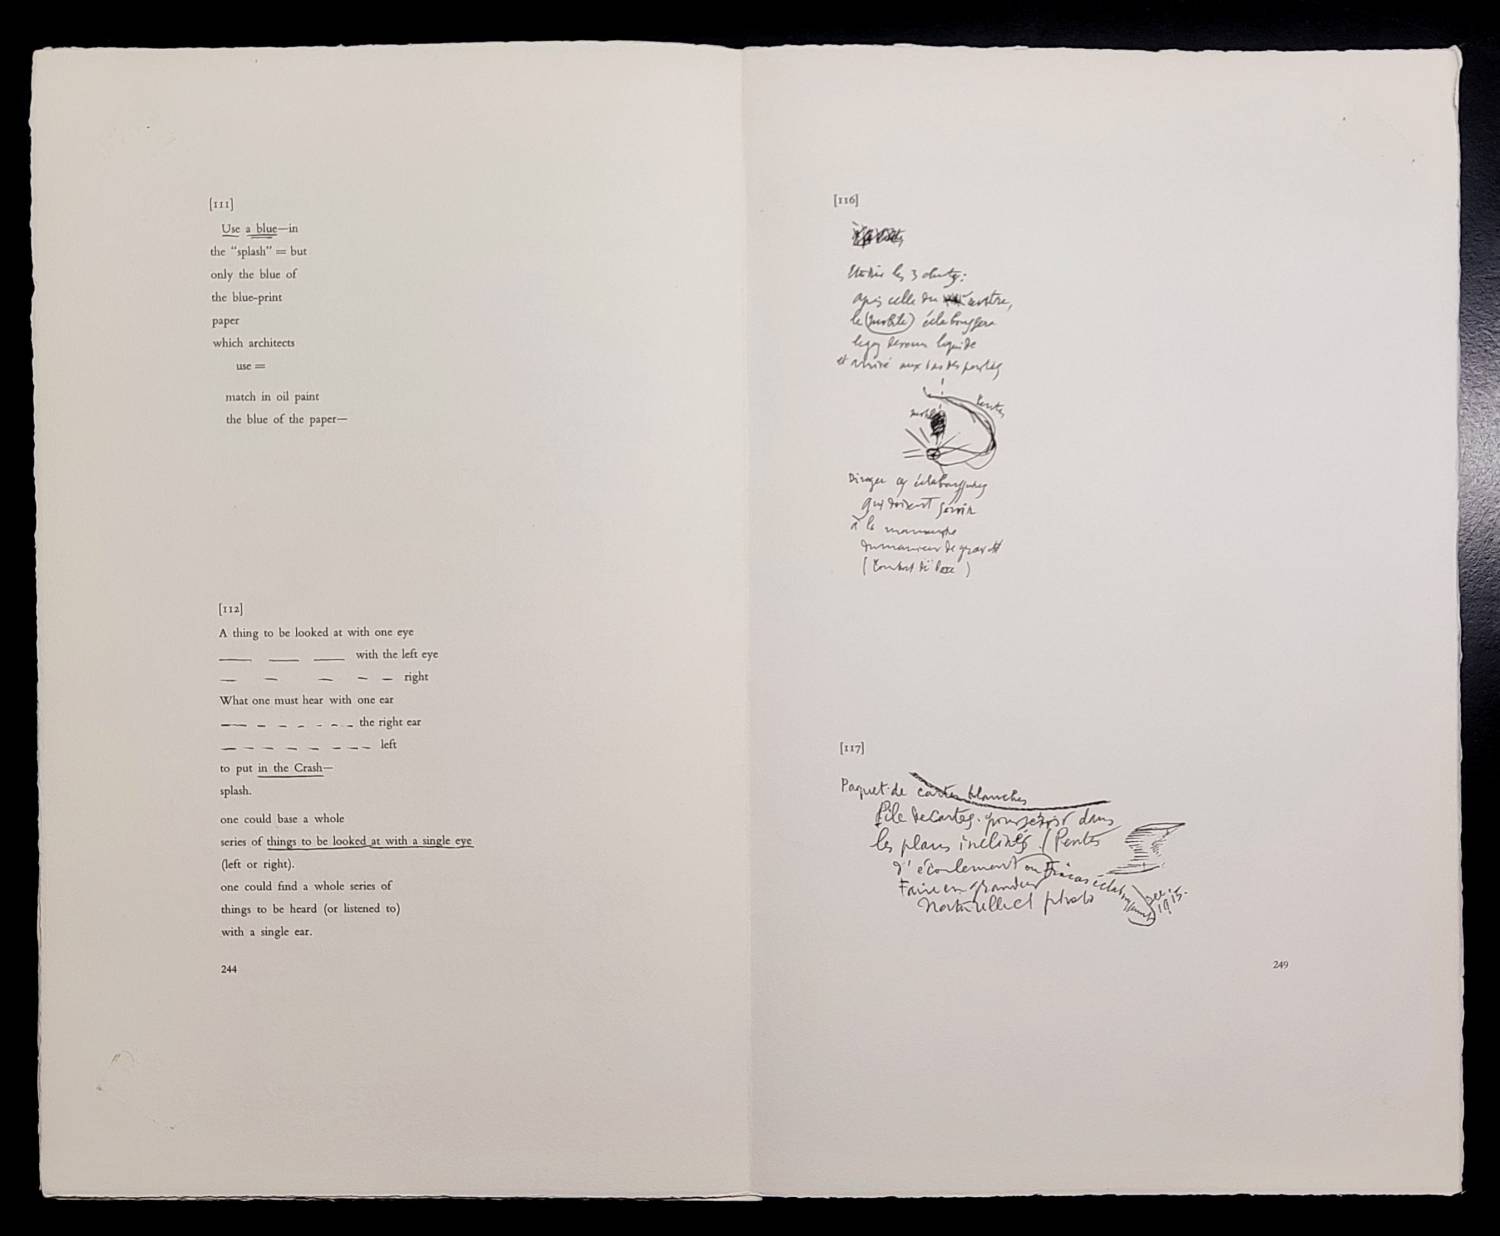 [111]
Use a blue—in
the "splash" = but
only the blue of
the blue-print
paper
which architects
use =
match in oil paint
the blue of the paper—
[112]
A thing to be looked at with one eye
— — — with the left eye
— — — — — right
What one must hear with one ear
— — — — — — — the right ear
— — — — — — — — left
to put in the Crash—
splash.
one could base a whole
series of things to be looked at with a single eye
(left or right).
one could find a whole series of
things to be heard (or listened to)
with a single ear.
244
[116]
les 3 chutes:
après celle du centre,
le (mobile) éclaboussera
liquide
et arrivé aux bas des pentes
mobile
Pentes
Diriger ces éclaboussures
qui doivent servir
à la manœuvre
du manieur de gravité
(Combat de boxe)
[117]
Paquet de cartes blanches
Pile de cartes. dans
les plans inclinés / Pentes
d'écoulement ou Fracas éclaboussant
Faire en grandeur
naturelle et photo
Dec.
1915.
249